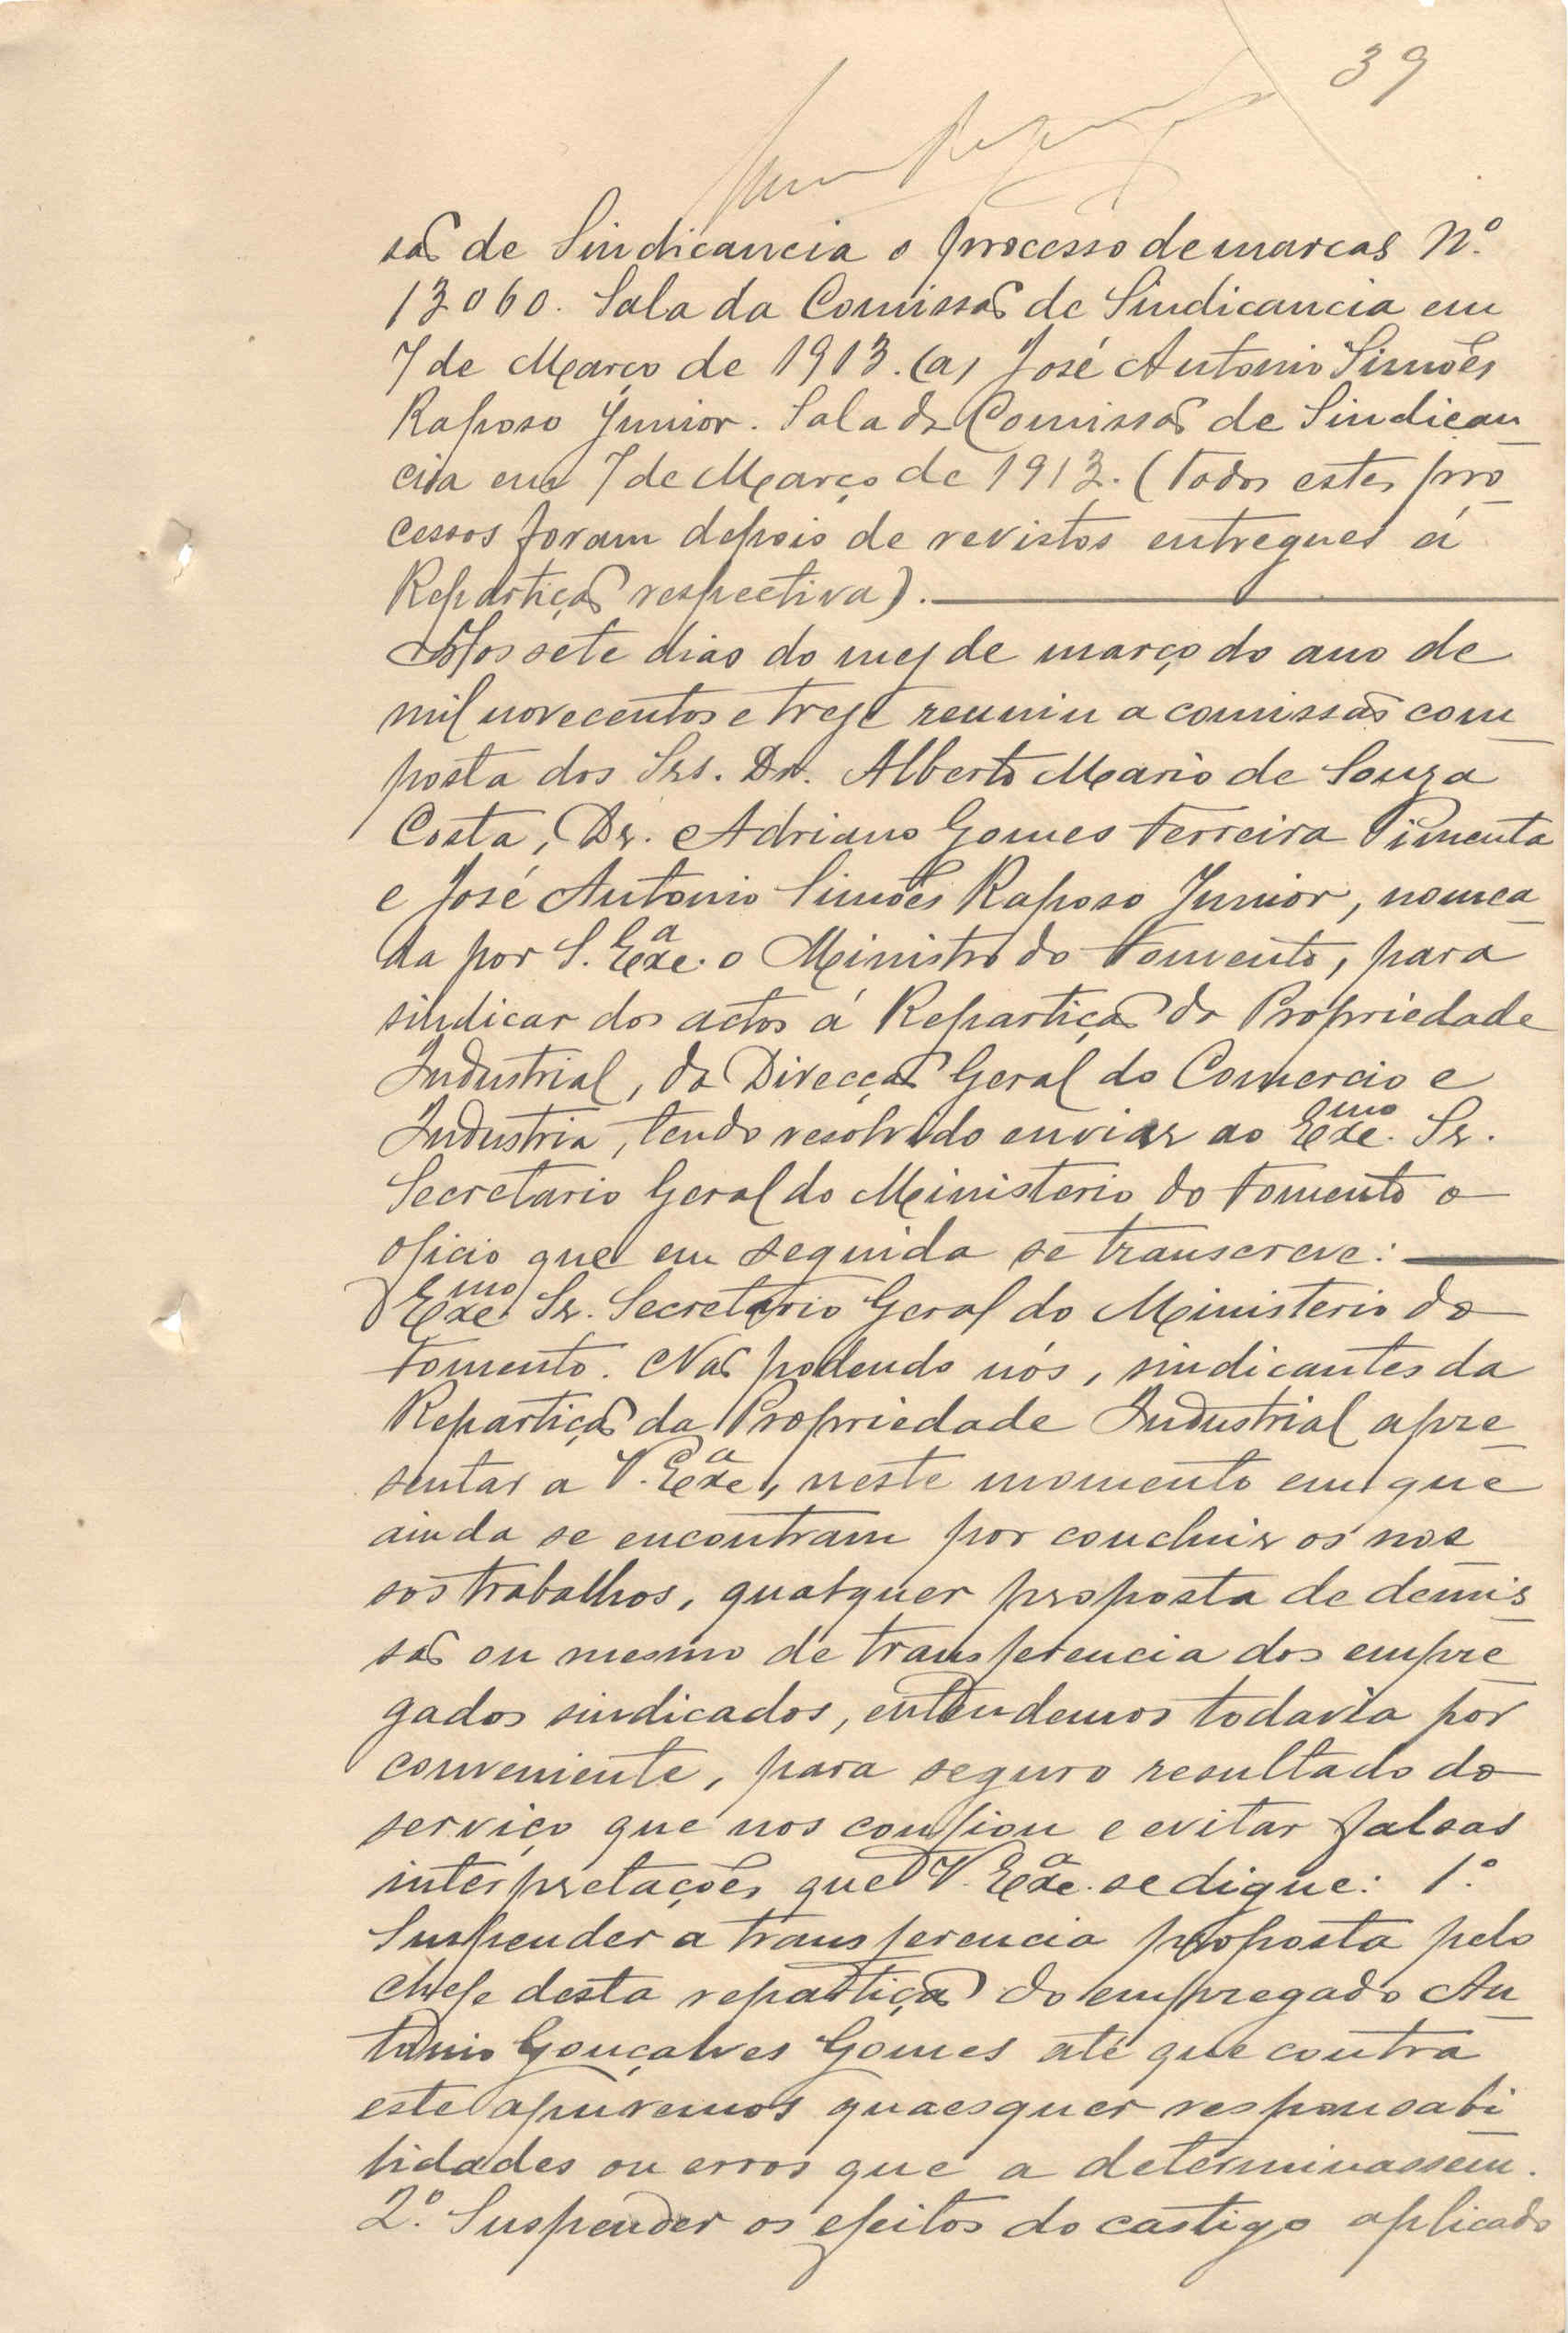 39
são de Sindicancia o processo de marcas Nº
13060. Sala da Comissão de Sindicancia em
7 de Março de 1913. (a) José Antonio Simões
Raposo Junior. Sala da Comissão de Sindican
cia em 7 de Março de 1913. (Todos estes pro
cessos foram depois de revistos entregues á
Repartição respectiva).
Aos sete dias do mez de março do ano de
mil novecentos e treze reuniu a comissão com
posta dos Srs. Dr. Alberto Mario de Souza
Costa, Dr. Adriano Gomes Ferreira Pimenta
e José Antonio Simões Raposo Junior, nomea
da por S. Exc.ª o Ministro do Fomento, para
sindicar dos actos á Repartição da Propriedade
Industrial, da Direcção Geral do Comercio e
Industria, tendo resolvido enviar ao Exc.mo Sr.
Secretario Geral do Ministerio do Fomento o
oficio que em seguida se transcreve:
Exc.mo Sr. Secretario Geral do Ministerio do
Fomento. Não podendo nós, sindicantes da
Repartição da Propriedade Industrial apre
sentar a V. Exc.ª, neste momento em que
ainda se encontram por concluir os nos
sos trabalhos, qualquer proposta de demis
são ou mesmo de transferencia dos empre
gados sindicados, entendemos todavia por
conveniente, para seguro resultado do
serviço que nos confiou e evitar falsas
interpretações que V. Exc.ª se digne: 1º
Suspender a transferencia proposta pelo
chefe desta repartição do empregado An
tonio Gonçalves Gomes até que contra
este apuremos quaesquer responsabi
lidades ou erros que a determinassem.
2º. Suspender os efeitos do castigo aplicado